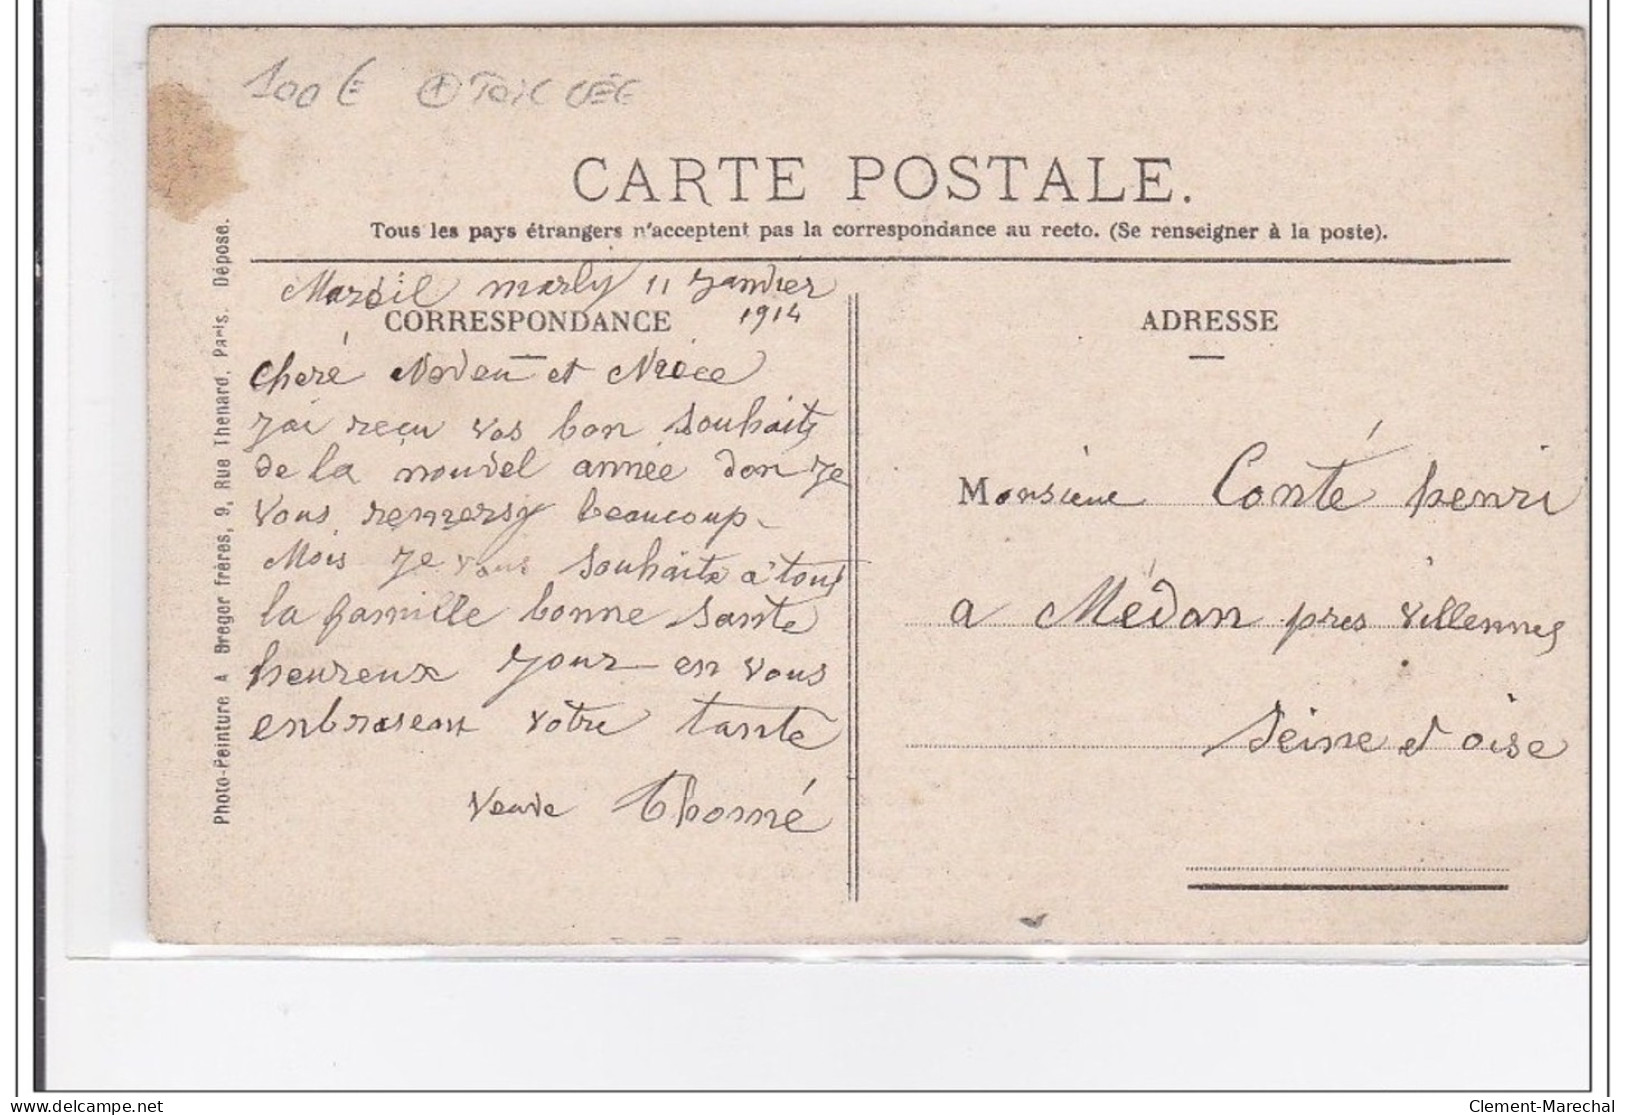 100€
CARTE POSTALE.
Tous les pays étrangers n'acceptent pas la correspondance au recto. (Se renseigner à la poste).
Mareil marly 11 Janvier
1914
CORRESPONDANCE
cheré Neveu et Niece
J'ai reçu vos bon souhaits
de la nouvel année don je
vous remersy beaucoup.
Mois je vous souhaite a tous
la famille bonne sante
heureux jour en vous
enbrasean votre tante
veuve Thomé
ADRESSE
Monsieur Conté henri
a Médan pres villennes
Seine et oise
Photo-Peinture A Breger frères, 9, Rue Thenard, Paris. Déposé.
Clement-Marechal